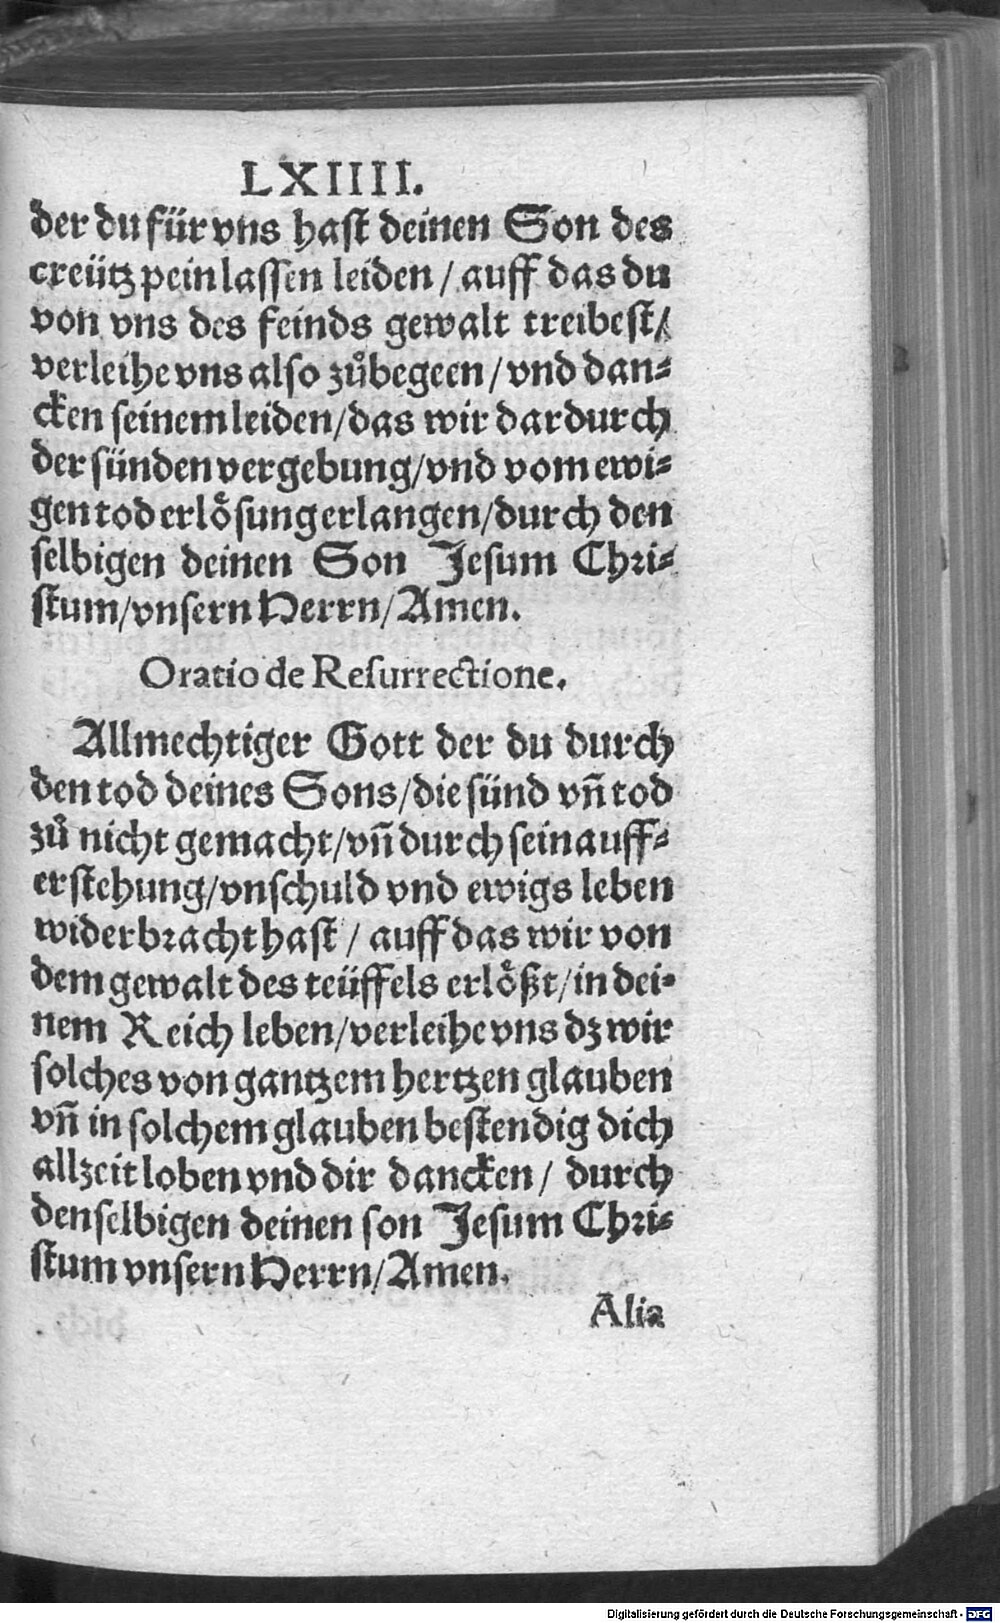 LXIIII.
der du für vns hast deinen Son des
creütz pein lassen leiden / auff das du
von vns des feinds gewalt treibest /
verleihe vns also zůbegeen / vnd dan⸗
cken seinem leiden / das wir dardurch
der sünden vergebung / vnd vom ewi⸗
gen tod erlösung erlangen / durch den
selbigen deinen Son Jesum Chri⸗
stum / vnsern Herrn / Amen.
Oratio de Resurrectione.
Allmechtiger Gott der du durch
den tod deines Sons / die sünd vñ tod
zů nicht gemacht / vñ durch sein auff⸗
erstehung / vnschuld vnd ewigs leben
widerbracht hast / auff das wir von
dem gewalt des teüffels erlößt / in dei⸗
nem Reich leben / verleihe vns dz wir
solches von gantzem hertzen glauben
vñ in solchem glauben bestendig dich
allzeit loben vnd dir dancken / durch
denselbigen deinen son Jesum Chri⸗
stum vnsern Herrn / Amen.
Alia
Digitalisierung gefördert durch die Deutsche Forschungsgemeinschaft - DFG